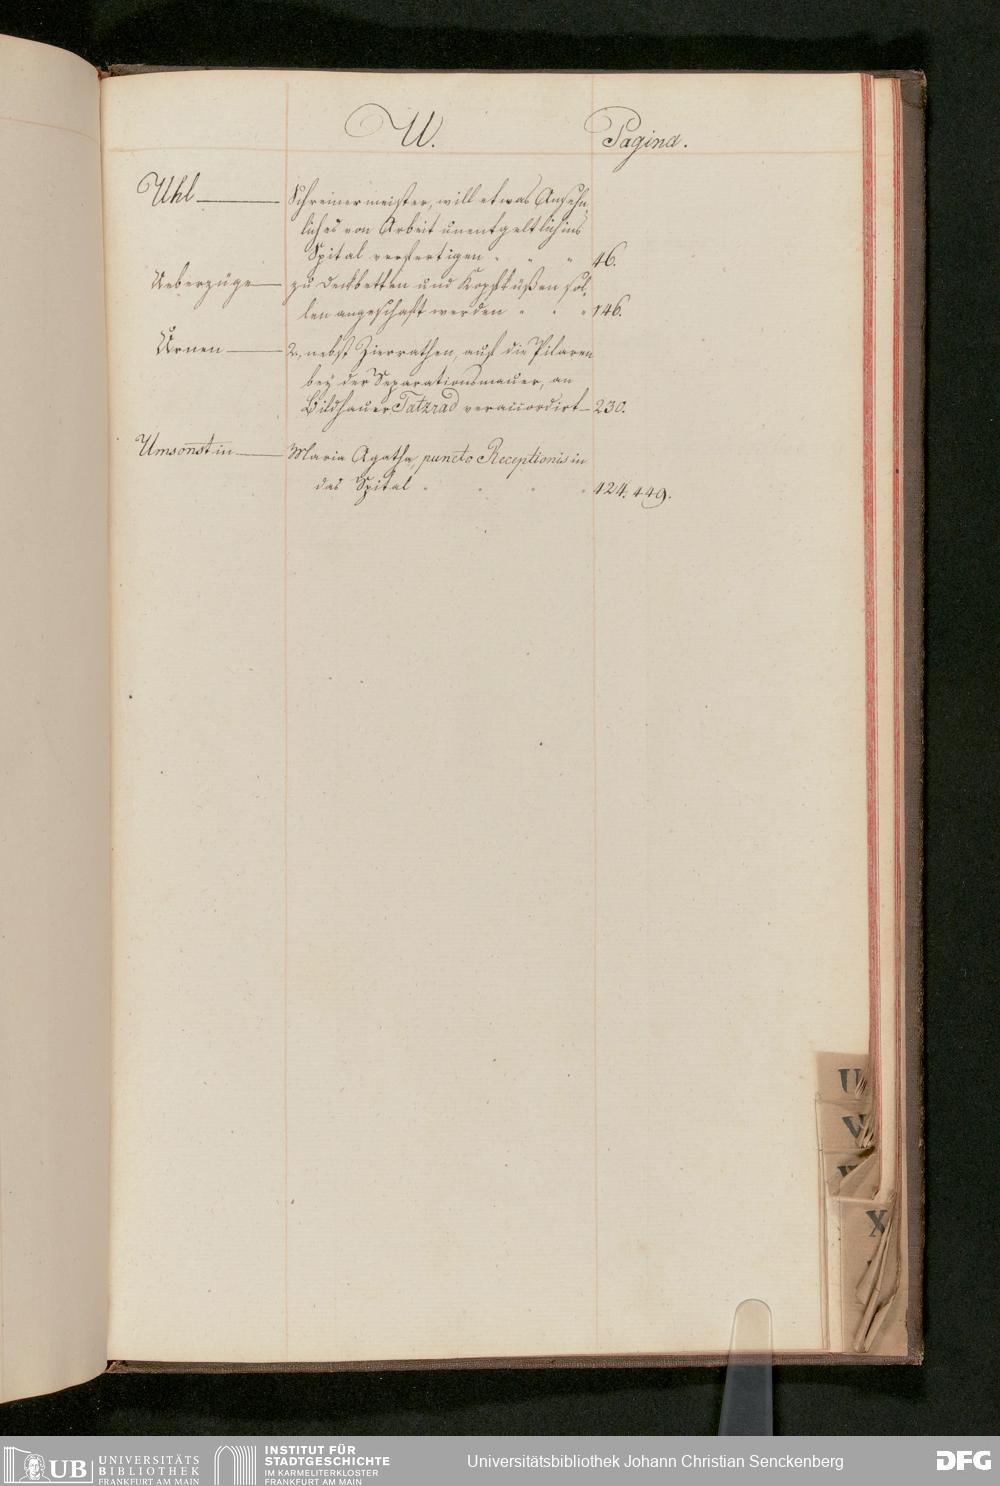 U. Pagina.
Uhl — Schreinermeister, will etwas Ansehn-
liches von Arbeit unentgeltlich ins
Spital verfertigen " " " 46.
Ueberzüge — zu Deckbetten und Kopfküßen sol-
len angeschaft werden " " " 146.
Urnen — 2., nebst Zierrathen, auf die Pilaren
bey der Separationsmauer, an
Bildhauer Tatzrad veraccordirt — 230.
Umsonstin — Maria Agatha, puncto Receptionis in
das Spital " " " " 424. 449.
U
V
W
X
UB UNIVERSITÄTS
BIBLIOTHEK
FRANKFURT AM MAIN
INSTITUT FÜR
STADTGESCHICHTE
IM KARMELITERKLOSTER
FRANKFURT AM MAIN
Universitätsbibliothek Johann Christian Senckenberg
DFG